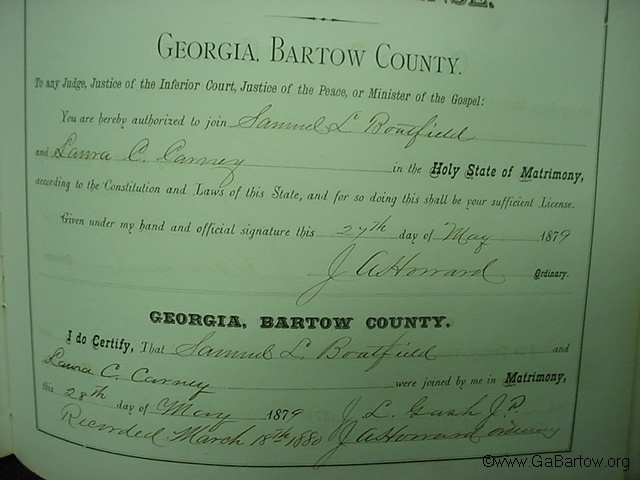 GEORGIA, BARTOW COUNTY.
To any Judge, Justice of the Inferior Court, Justice of the Peace, or Minister of the Gospel:
You are hereby authorized to join Samuel L. Boutfield
and Laura C. Carney in the Holy State of Matrimony,
according to the Constitution and Laws of this State, and for so doing this shall be your sufficient License.
Given under my hand and official signature this 27th day of May 1879
J A Howard Ordinary.
GEORGIA, BARTOW COUNTY.
I do Certify, That Samuel L. Boutfield and
Laura C. Carney were joined by me in Matrimony,
this 28th day of May 1879 J. L. Gash J.P.
Recorded March 18th 1880 J A Howard ordinary
©www.GaBartow.org